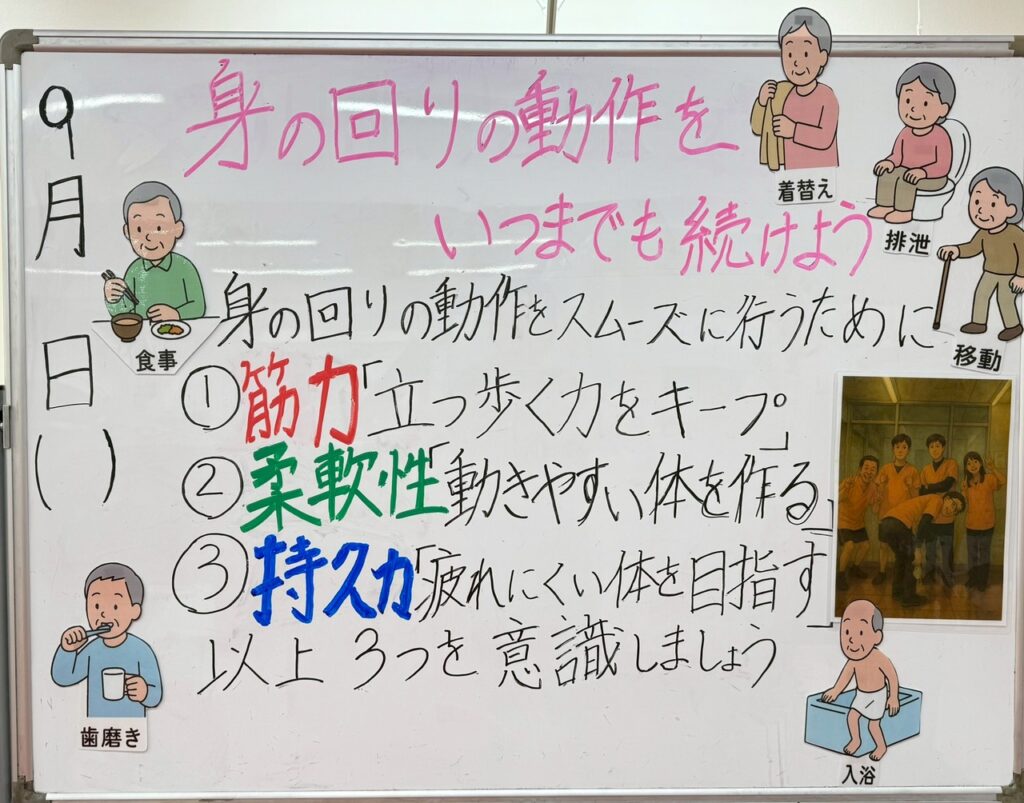 9月 日( )
身の回りの動作を
いつまでも続けよう
身の回りの動作をスムーズに行うために
①筋力「立つ歩く力をキープ」
②柔軟性「動きやすい体を作る」
③持久力「疲れにくい体を目指す」
以上3つを意識しましょう
着替え
排泄
移動
食事
歯磨き
入浴